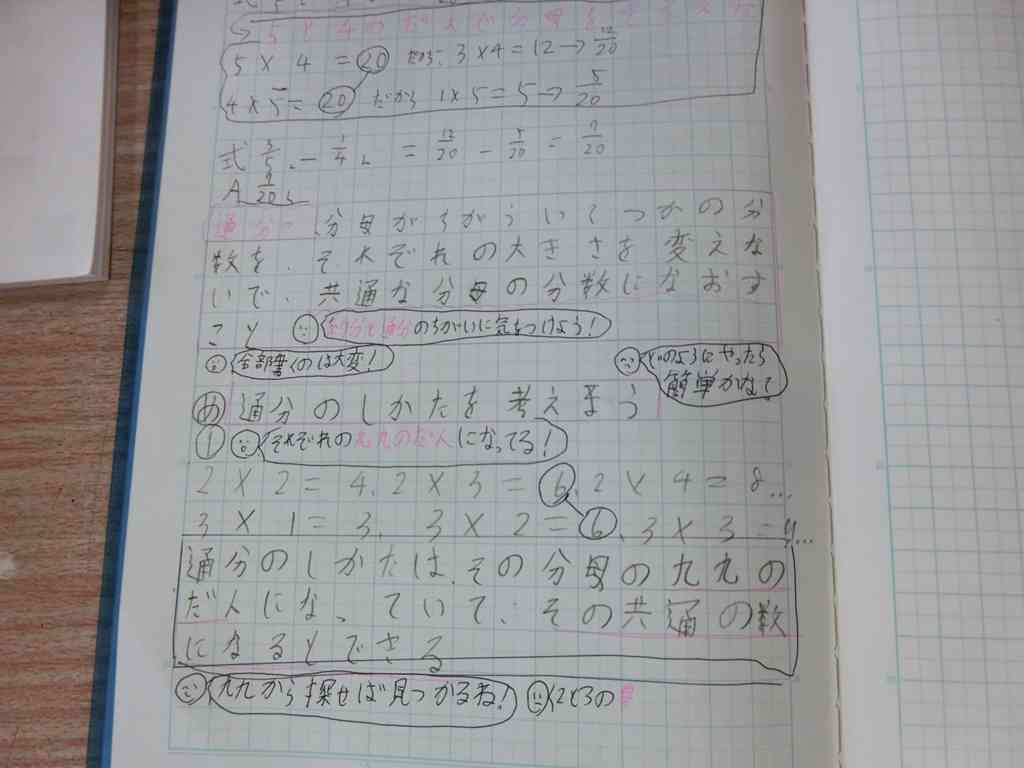 5と4のだんが分母
5 × 4 = 20 だから 3×4=12→12/20
4×5=20 だから 1×5=5→5/20
式 3/5 - 1/4 = 12/20 - 5/20 = 7/20
A
通分… 分母がちがういくつかの分
数を、それぞれの大きさを変えな
いで、共通な分母の分数になおす
こと 約分と通分のちがいに気をつけよう!
全部書くのは大変! どのようにやったら
簡単かなぁ
め 通分のしかたを考えよう
1 それぞれの九九のだんになってる!
2×2=4、2×3=6、2×4=8…
3×1=3、3×2=6、3×3=9…
通分のしかたは、その分母の九九の
だんになっていて、その共通の数
になるとできる
九九から探せば見つかるね!